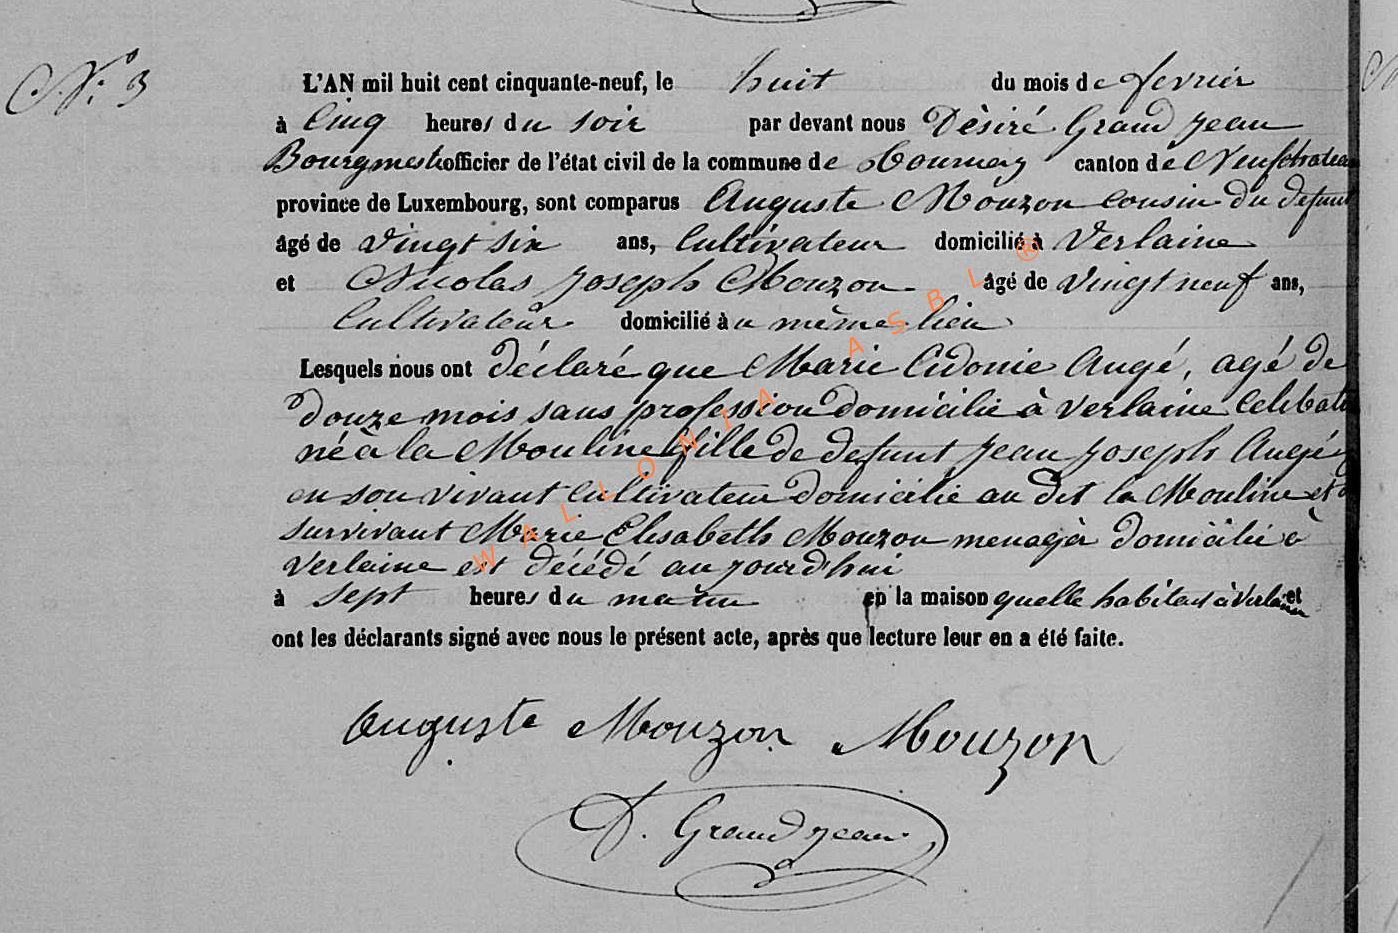 N.° 3
L'AN mil huit cent cinquante-neuf, le huit du mois de fevrier
à Cinq heures du soir par devant nous Dèsiré Grand Jean
Bourgmestre officier de l'état civil de la commune de Tournay canton de Neufchateau
province de Luxembourg, sont comparus Auguste Mouzon cousin du defunt
âgé de Vingt six ans, Cultivateur domicilié à Verlaine
et Nicolas Joseph Mouzon âgé de Vingt neuf ans,
Cultivateur domicilié au même lieu
Lesquels nous ont déclaré que Marie Cidonie Augé, agé de
Douze mois sans profession domicilié à Verlaine Celibat
né à la Mouline fille de defunt Jean Joseph Augé
en son vivant Cultivateur domicilié au dit la Mouline et
survivant Marie Elisabeth Mouzon menagèr domicilié à
Verlaine est décédé aujourd'hui
à Sept heures du matin en la maison quelle habitait à Verlaine et
ont les déclarants signé avec nous le présent acte, après que lecture leur en a été faite.
Auguste Mouzon Mouzon
D. Grandjean
WALLONIA ASBL ®